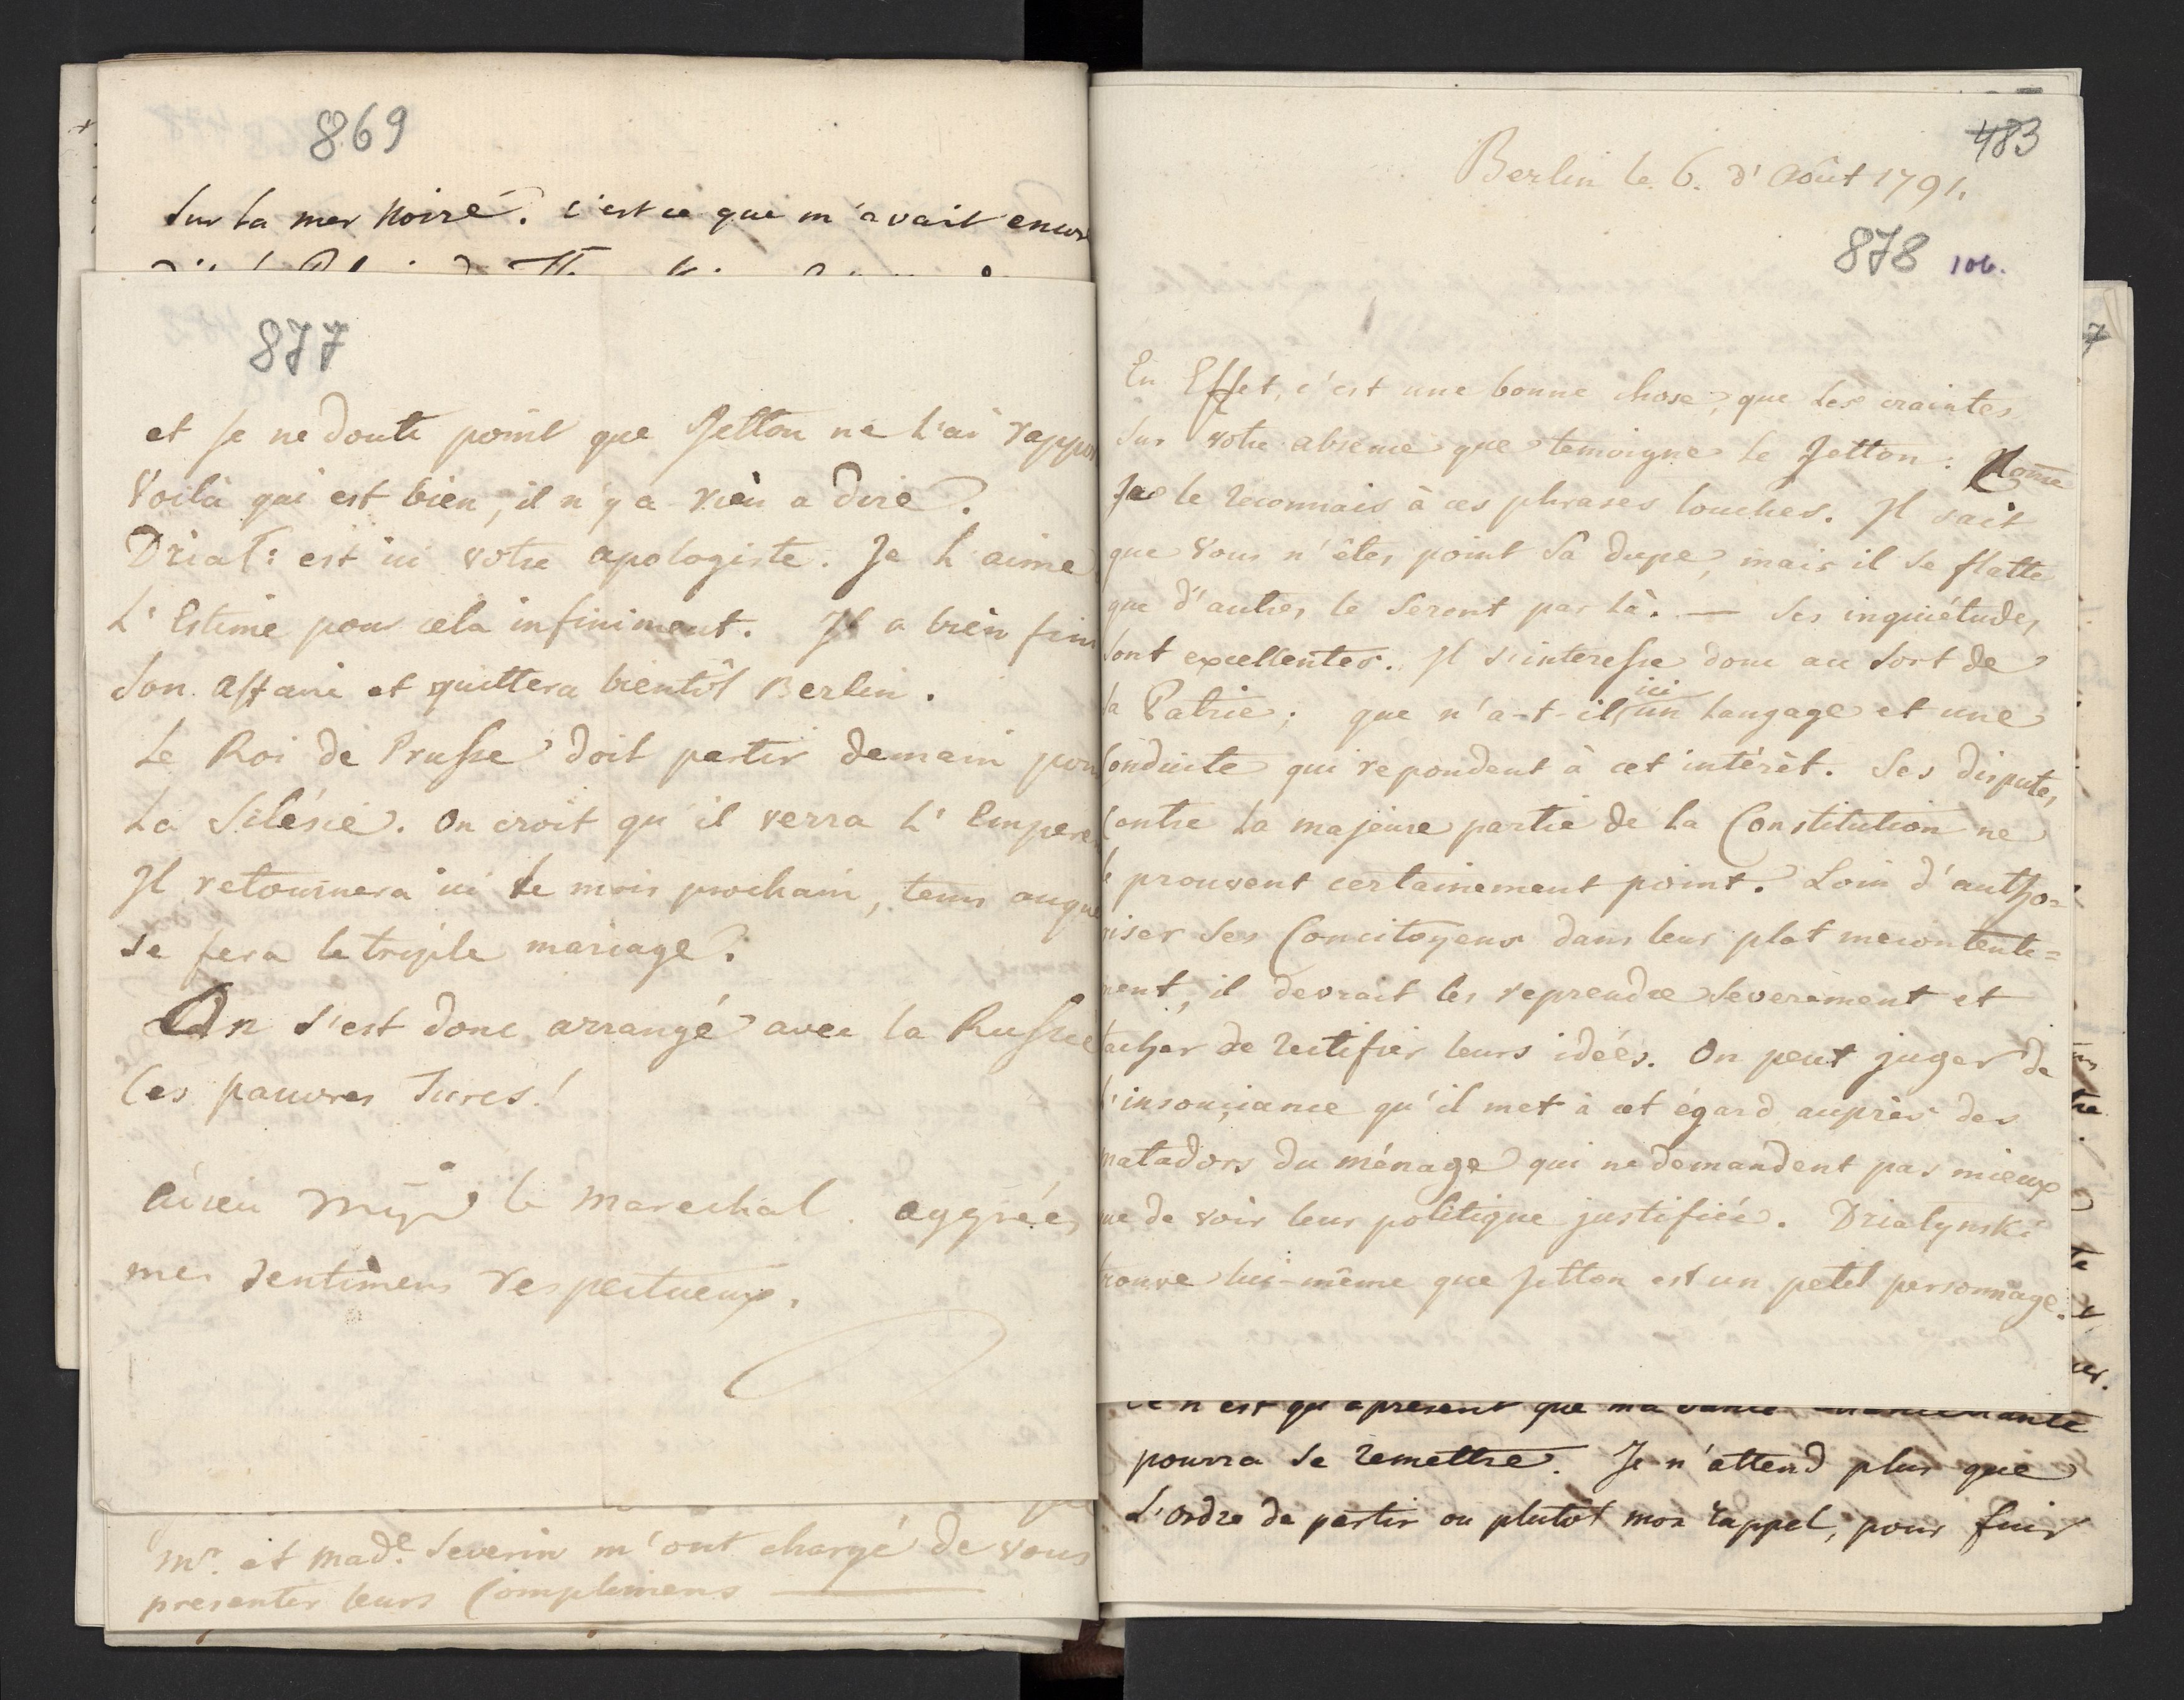 869
Sur la mer Noire. c'est ce que m'avait encor
877
et je ne doute point que Jetton ne l'ai rappor
Voilà qui est bien, il n'y a rien a dire.
Dział: est ici votre apologiste. Je l'aime
l'Estime pour cela infiniment. Il a bien fini
Son affaire et quittera bientôt Berlin.
Le Roi de Prusse doit partir demain pou
La Silésie. On croit qu'il verra l'Empere
Il retournera ici le mois prochain, tems auque
se fera le triple mariage.
On s'est donc arrangé avec la Russie
Ces pauvres Turcs!
le Marechal. aggréés
mes Sentimens respectueux.
Mr. et Made. Severin m'ont chargé de vous
presenter leurs Complimens
483
Berlin le 6. d'Août 1791.
878 106.
En Effet, c'est une bonne chose, que les craintes
Sur votre absence que temoigne le Jetton.
Je le reconnais à ces phrases louches. Il sait
que Vous n'êtes point Sa dupe, mais il Se flatte
que d'autres le Seront par là. — Ses inquiétudes
Sont excellentes. Il s'interesse donc au Sort de
la Patrie; que n'a-t-il ici un langage et une
Conduite qui repondent à cet intérêt. Ses disputes
Contre la majeure partie de la Constitution ne
le prouvent certainement point. Loin d'autho=
riser Ses Concitoyens dans leur plat mecontente=
ment, il devrait les reprendre Severement et
tacher de rectifier leurs idées. On peut juger de
l'insouçiance qu'il met à cet égard auprès des
matadors du ménage qui ne demandent pas mieux
que de voir leur politique justifiée. Dzialynski
trouve lui-même que Jetton est un petit personnage.
Ce n'est qu'apresent que ma
pourra Se remettre. Je n'attend plus que
L'ordre de partir ou plutôt mon rappel, pour finir